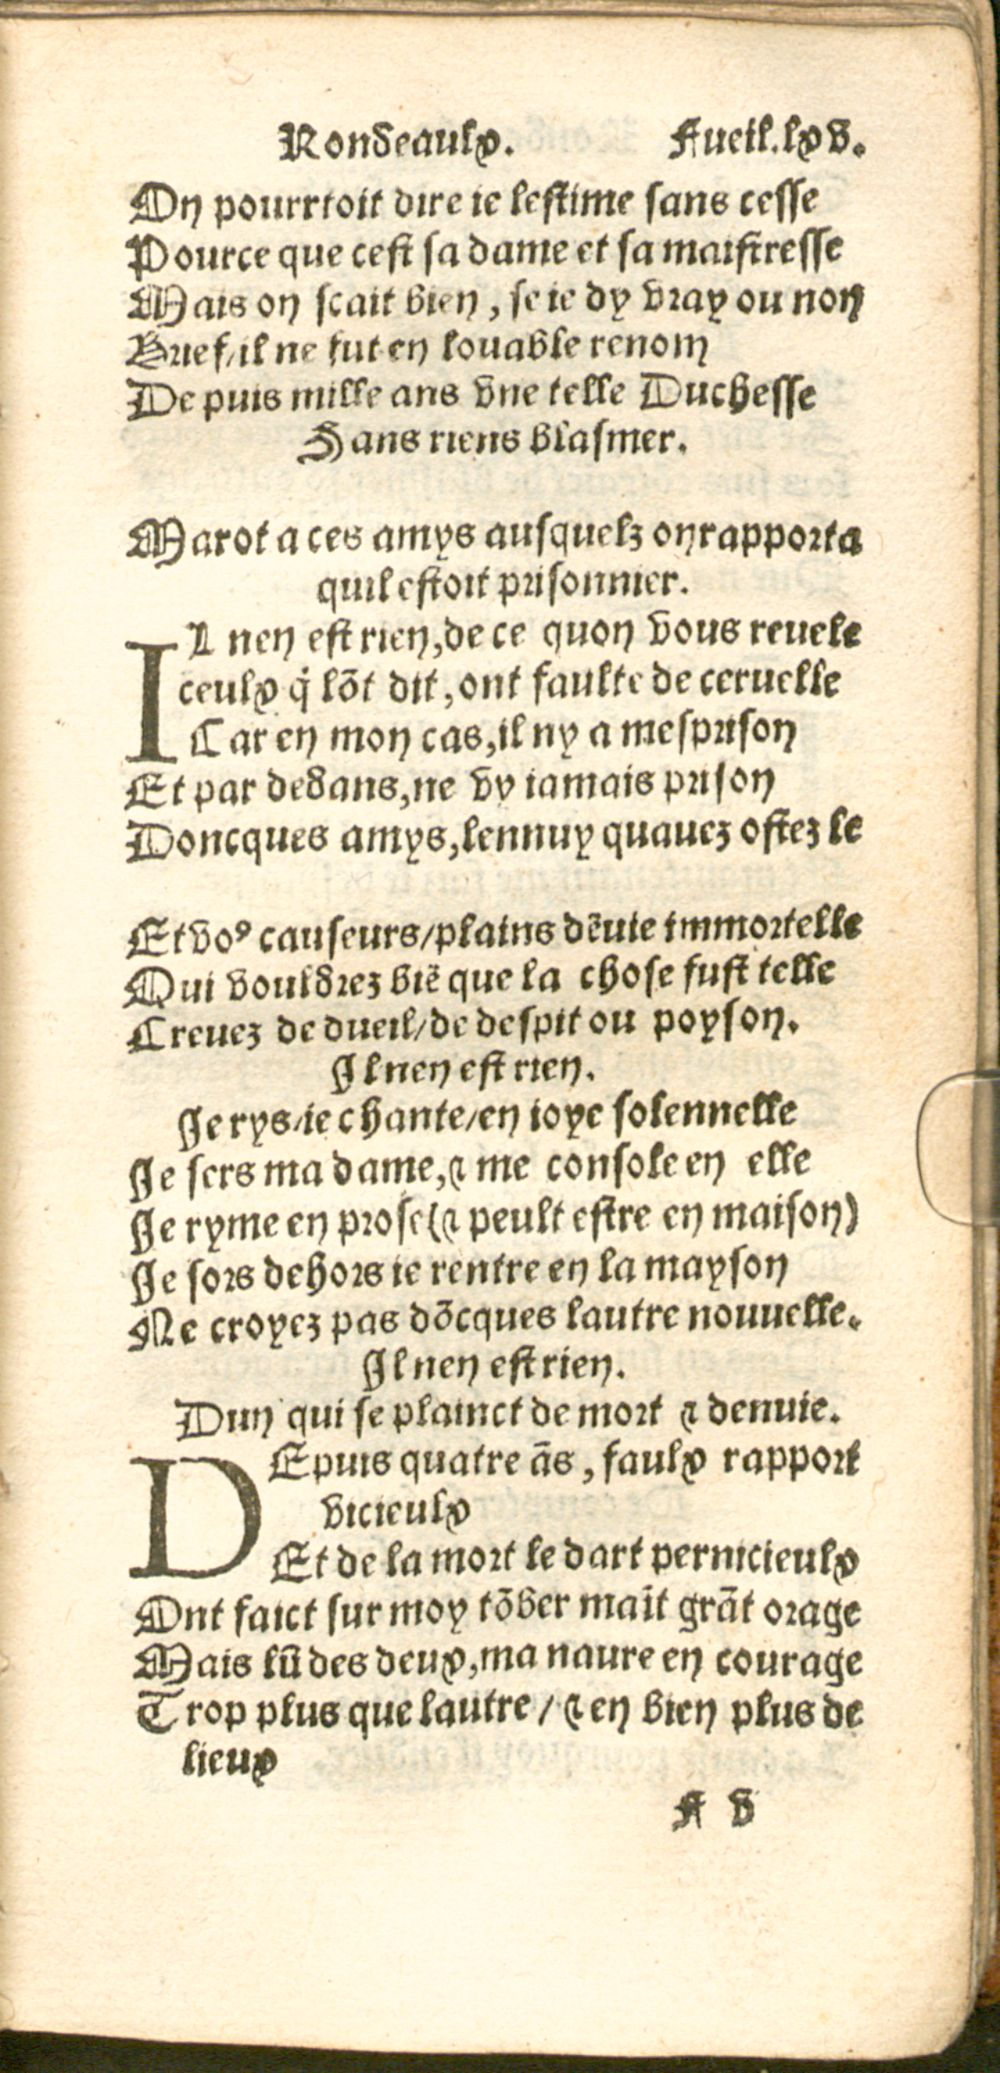 Rondeaulx. Fueil.lxv.
On pourrtoit dire ie lestime sans cesse
Pource que cest sa dame et sa maistresse
Mais on scait bien, se ie dy vray ou non
Brief/il ne fut en louable renom
De puis mille ans vne telle Duchesse
Sans riens blasmer.
Marot a ces amys ausquelz on rapporta
quil estoit prisonnier.
IL nen est rien,de ce quon vous reuele
ceulx q̇ lõt dit,ont faulte de ceruelle
Car en mon cas,il ny a mesprison
Et par dedans,ne vy iamais prison
Doncques amys,lennuy quauez ostez le
Et voꝰ causeurs/plains dẽuie immortelle
Qui vouldrez biẽ que la chose fust telle
Creuez de dueil/de despit ou poyson.
Il nen est rien.
Je rys/ie chante/en ioye solennelle
Je sers ma dame,⁊ me console en elle
Je ryme en prose(⁊ peult estre en maison)
Je sors dehors ie rentre en la mayson
Ne croyez pas dõcques lautre nouuelle.
Il nen est rien.
Dun qui se plainct de mort ⁊ denuie.
DEpuis quatre ãs, faulx rapport
vicieulx
Et de la mort le dart pernicieulx
Ont faict sur moy tõber maīt grãt orage
Mais lũ des deux,ma naure en courage
Trop plus que lautre/⁊ en bien plus de
lieux
F v